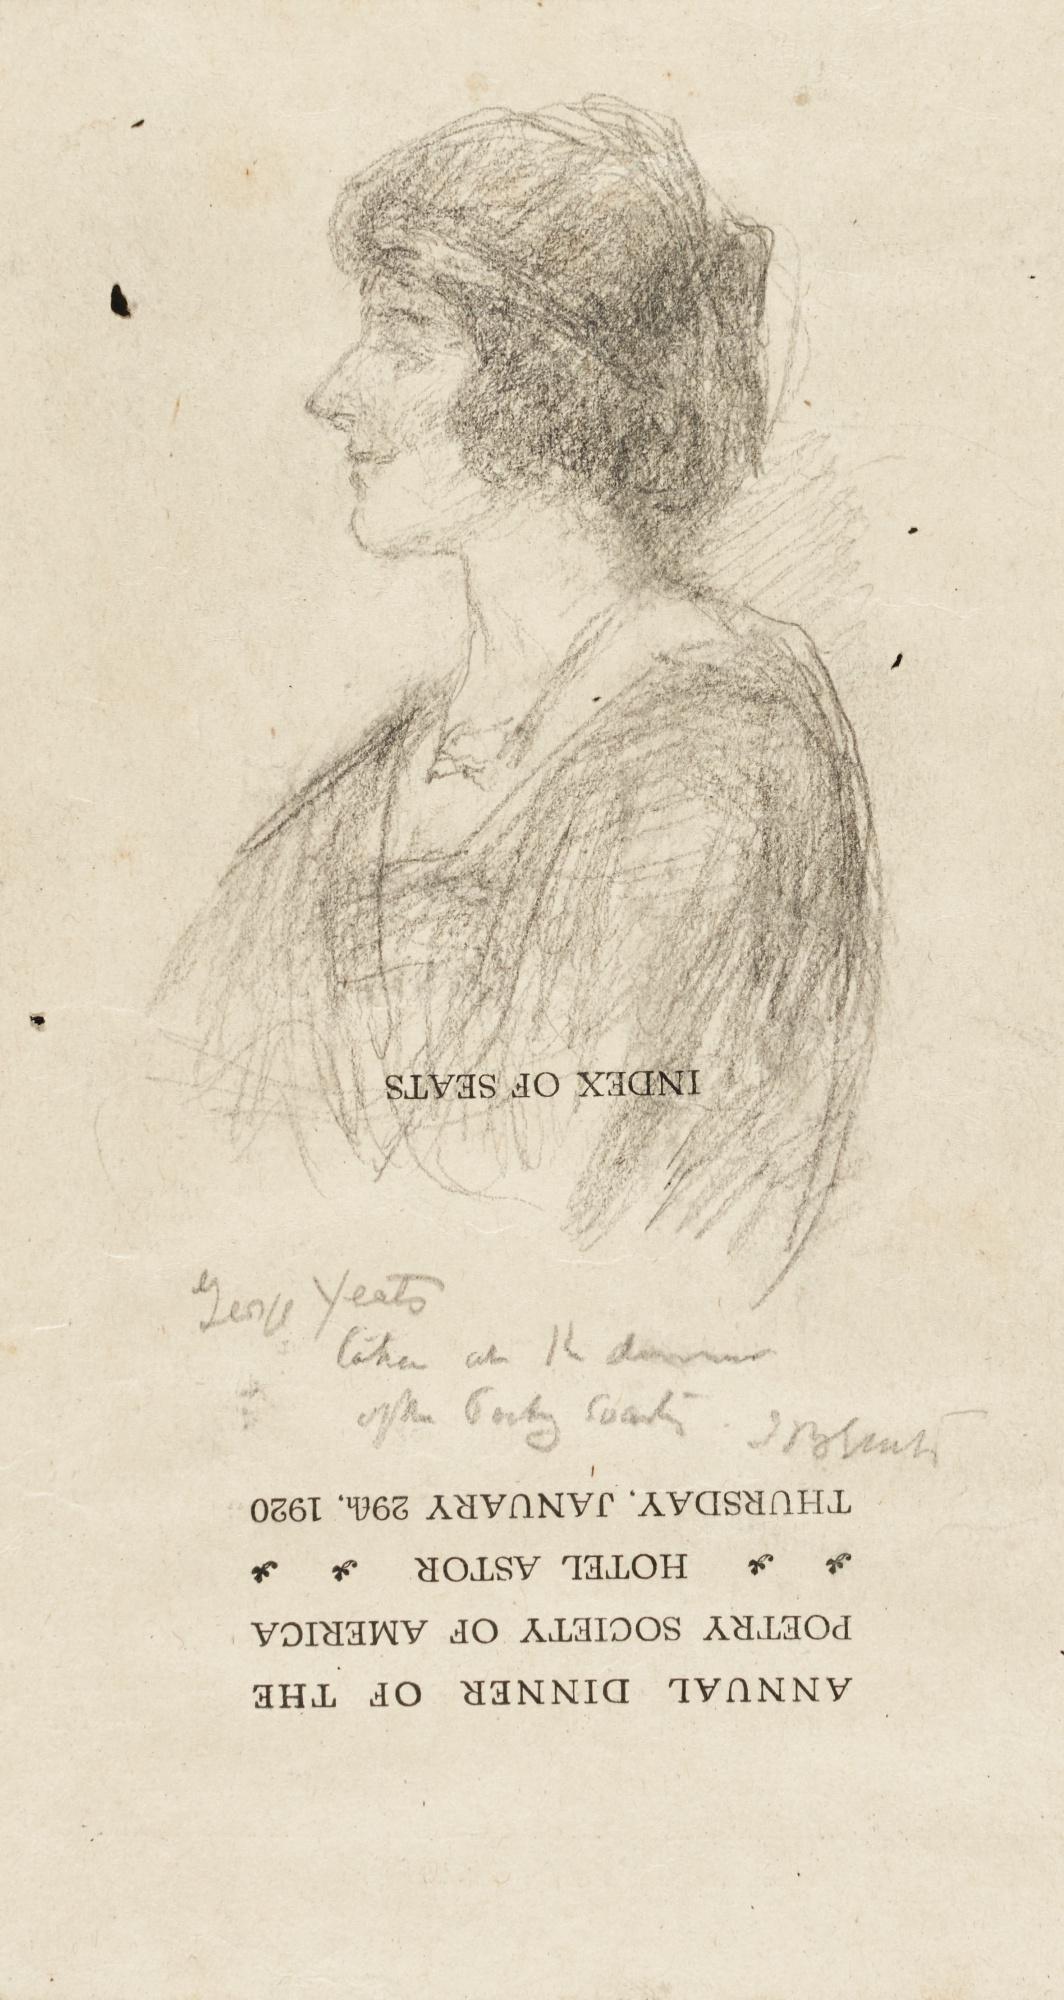 INDEX OF SEATS
George Yeats
taken at the dinner
of the Poetry Society. J B Yeats
THURSDAY, JANUARY 29th, 1920
HOTEL ASTOR
POETRY SOCIETY OF AMERICA
ANNUAL DINNER OF THE